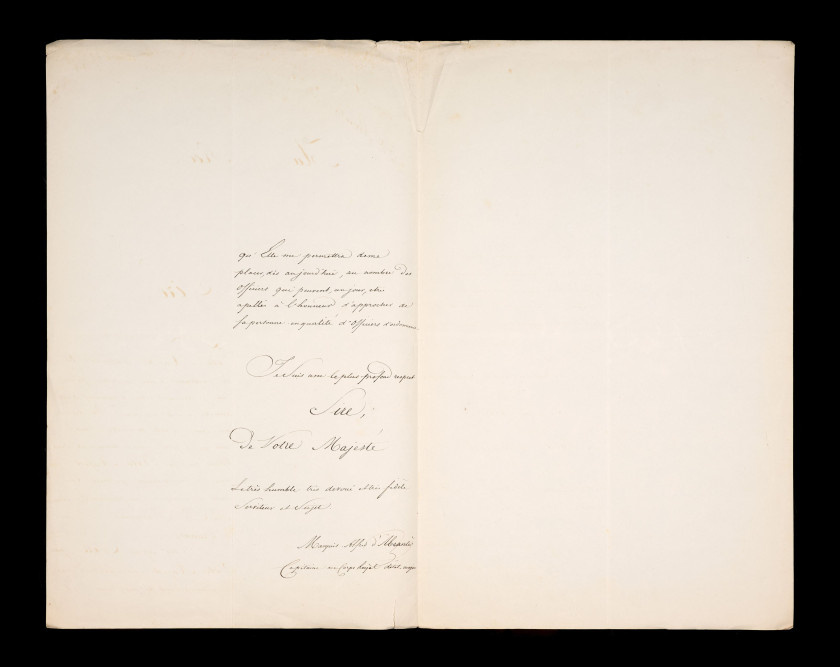 qu'Elle me permettra de me
placer, dès aujourd'hui, au nombre des
Officiers qui peuvent, un jour, etre
apellés à l'honneur d'approcher de
Sa personne en qualité d'Officiers d'ordonnance
Je Suis avec le plus profond respect
Sire,
De Votre Majesté
Le très humble très devoué et très fidèle
Serviteur et Sujet
Marquis Alfred d'
Capitaine au Corps Royal d'état, major